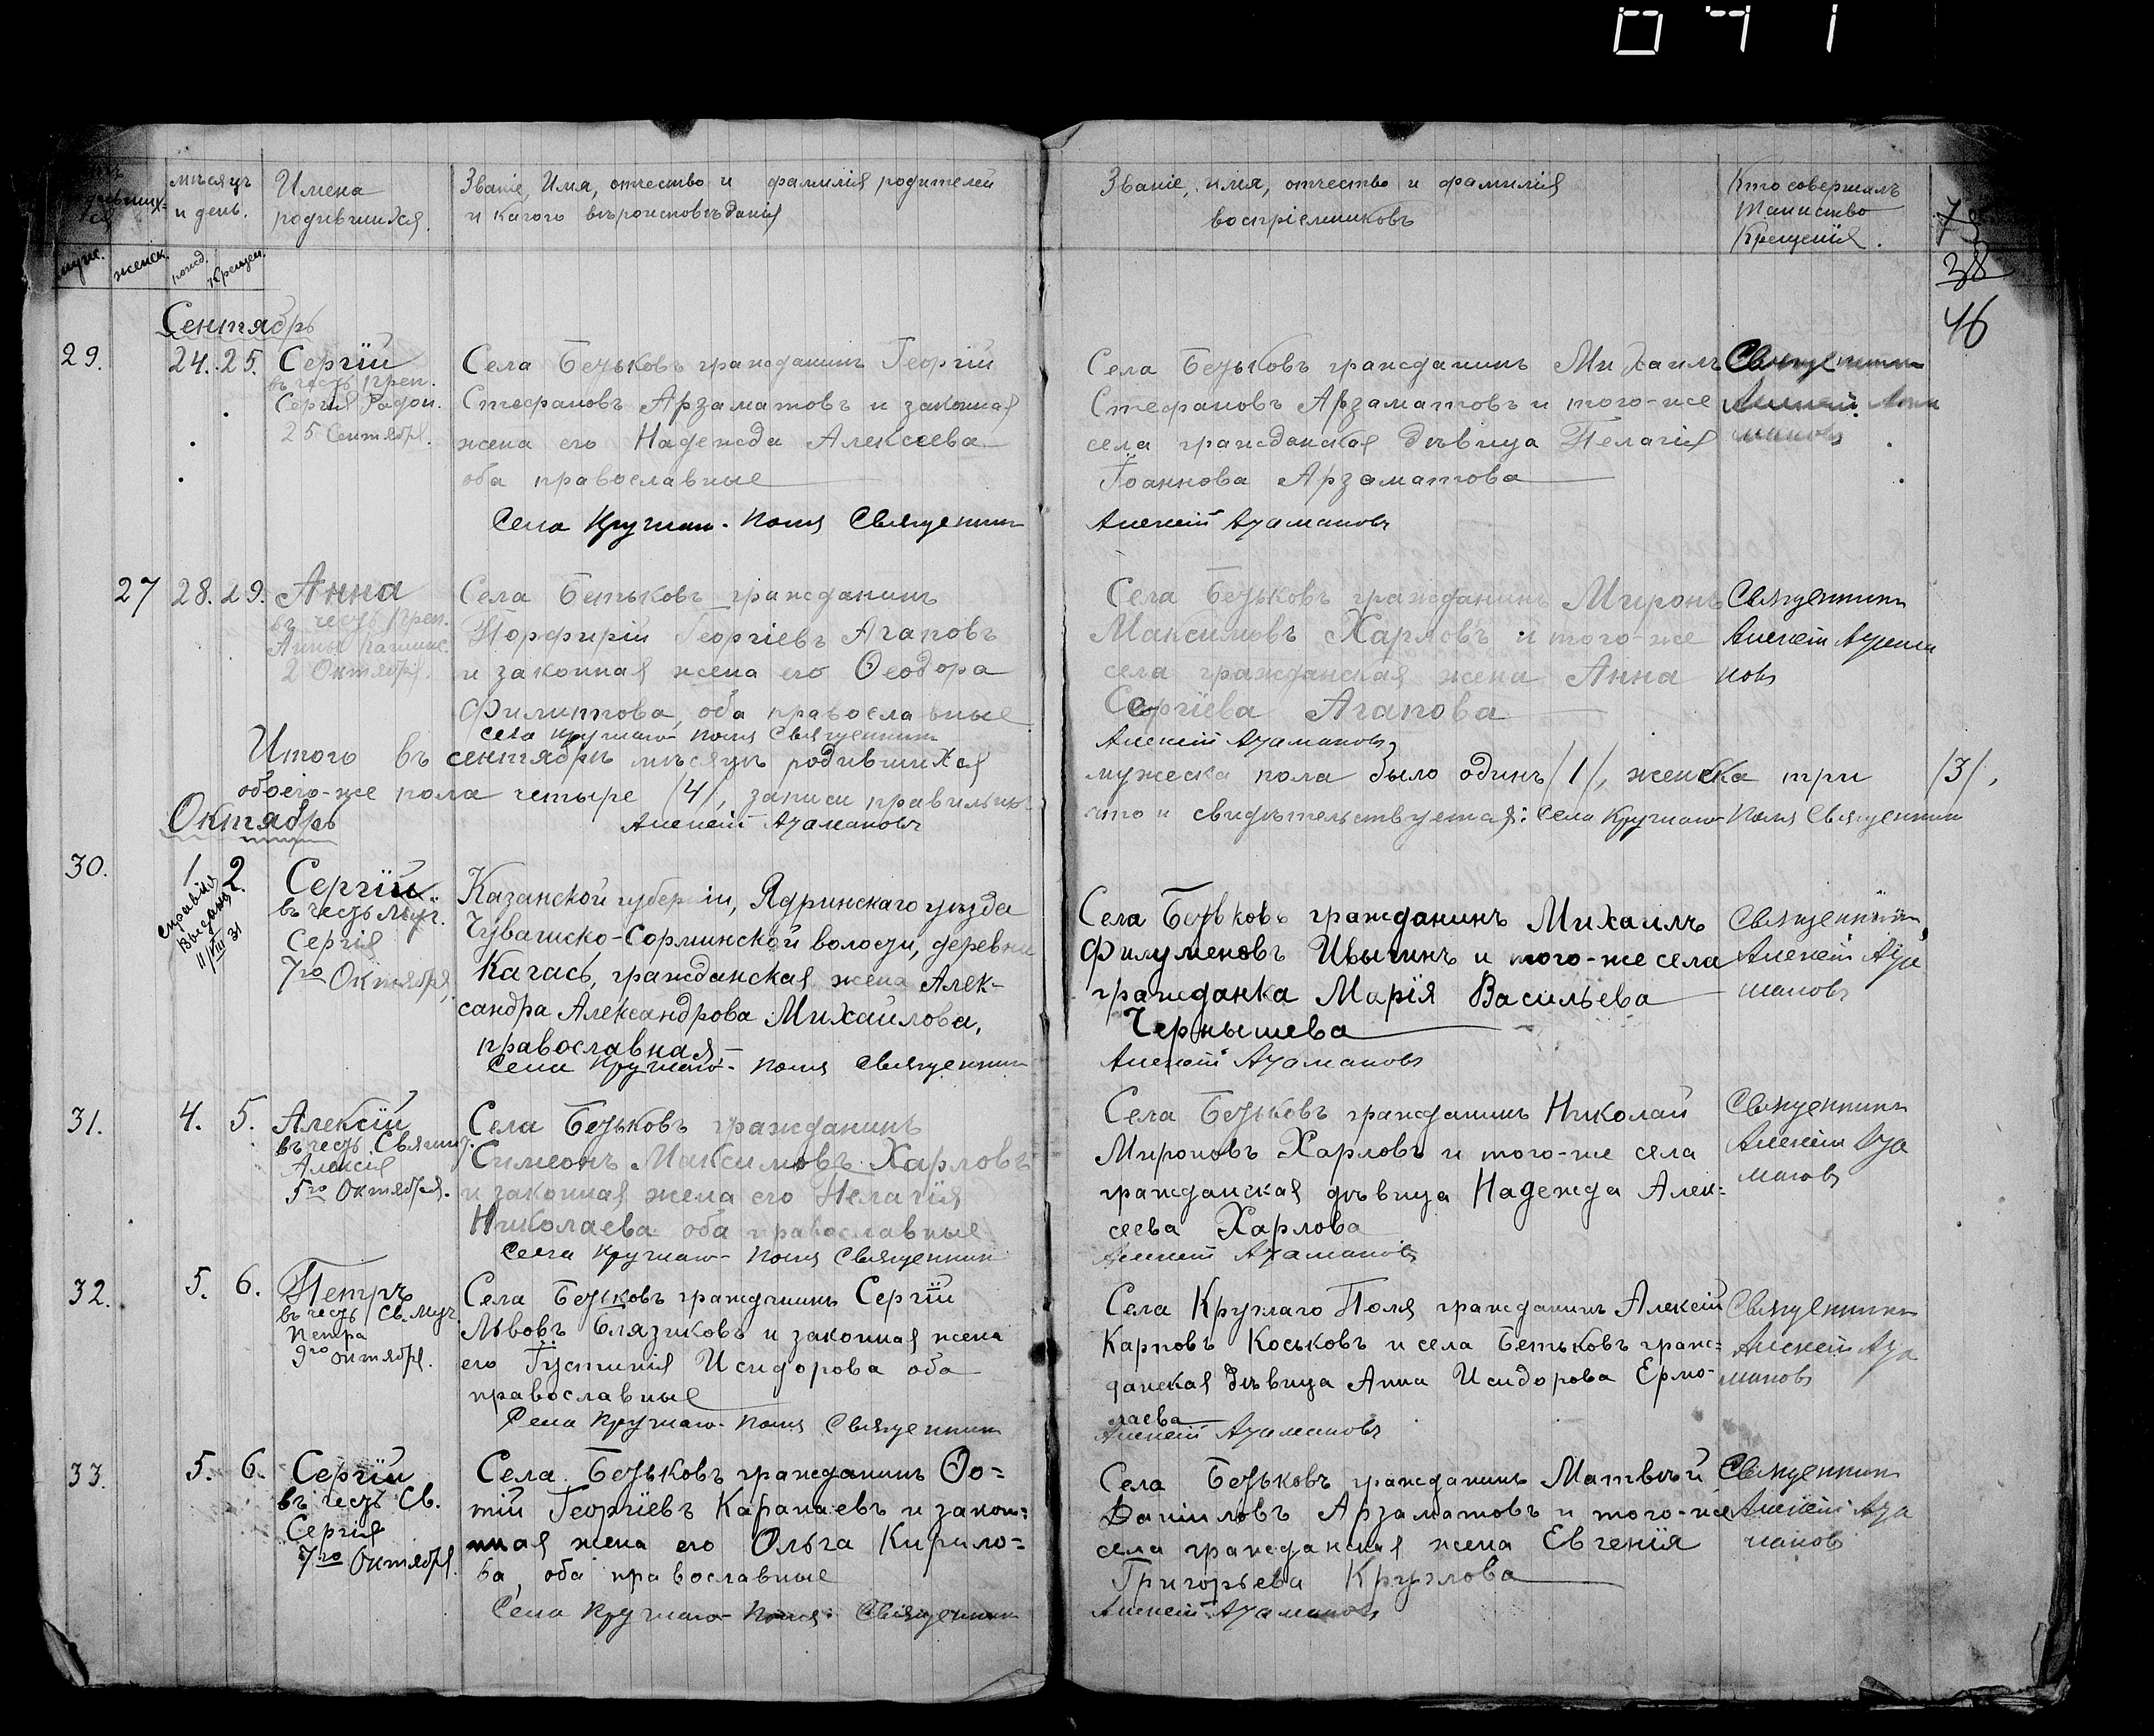 мѣсяцъ и день.
Имена родившихся.
Званіе, Имя, отчество и фамилія родителей
и какого вѣроисповѣданія
Званіе, имя, отчество и фамилія
воспріемниковъ
Кто совершалъ
Таинство
Крещенія.
женск.
рожд.
крещен.
38
46
Сентябрь
29.
24. 25.
Сергій
въ честь преп.
Сергія Радон.
25 Сентября.
Села Бетьковъ гражданинъ Георгій
Стефановъ Арзаматовъ и законная
жена его Надежда Алексеева
оба православные
Села Круглаго-Поля Священникъ
Села Бетьковъ гражданинъ Михаилъ
Стефановъ Арзаматовъ и того-же
села гражданская дѣвица Пелагія
Іоаннова Арзаматова
Алексій Атамановъ
Священникъ
Алексій Ата
мановъ
27
28. 29.
Анна
въ честь преп.
Анны Кашинс.
2 Октября.
Села Бетьковъ гражданинъ
Порфирій Георгіевъ Агаповъ
и законная жена его Ѳеодора
Филиппова, оба православные
села Круглаго-Поля Священникъ
Села Бетьковъ гражданинъ Миронъ
Максимовъ Харловъ и того-же
села гражданская жена Анна
Сергіева Агапова
Алексій Атамановъ
Священникъ
Алексій Атама
новъ
Итого въ сентябрѣ мѣсяцѣ родившихся
мужеска пола было одинъ /1/, женска три /3/,
обоего-же пола четыре /4/, записи правильно
что и свидѣтельствуется: Села Круглаго-Поля Священникъ
Алексій Атамановъ
Октябрь
30.
1 2.
справка
выдана
11/VIII 31
Сергій.
въ честь муч.
Сергія
7го Октября.
Казанской губерніи, Ядринскаго уѣзда
Чувашско-Сорминской волости, деревни
Кагась, гражданская жена Алек-
сандра Александрова Михайлова,
православная,
Села Круглаго-Поля Священникъ
Села Бетьковъ гражданинъ Михаилъ
Филуменовъ Ивыгинъ и того-же села
гражданка Марія Васильева
Чернышева
Алексій Атамановъ
Священникъ
Алексій Ата
мановъ
31.
4. 5.
Алексій
въ честь Святит.
Алексія
5го Октября.
Села Бетьковъ гражданинъ
Симеонъ Максимовъ Харловъ
и законная жена его Пелагія
Николаева оба православные
Села Круглаго-Поля Священникъ
Села Бетьковъ гражданинъ Николай
Мироновъ Харловъ и того-же села
гражданская дѣвица Надежда Алек=
сеева Харлова
Алексій Атамановъ
Священникъ
Алексій Ата
мановъ
32.
5. 6.
Петръ
въ честь Св. муч.
Петра
9го октября.
Села Бетьковъ гражданинъ Сергій
Львовъ Блязиковъ и законная жена
его Іустинія Исидорова оба
православные
Села Круглаго-Поля Священникъ
Села Круглаго Поля гражданинъ Алексій
Карповъ Коськовъ и села Бетьковъ граж=
данская дѣвица Анна Исидорова Ермо-
лаева
Алексій Атамановъ
Священникъ
Алексій Ата
мановъ
33.
5. 6.
Сергій
въ честь Св.
Сергія
7го Октября.
Села Бетьковъ гражданинъ Ѳо=
тій Георгіевъ Карапаевъ и закон=
ная жена его Ольга Кирило=
ва, оба православные
Села Круглаго-Поля Священникъ
Села Бетьковъ гражданинъ Матвѣй
Даніиловъ Арзаматовъ и того-же
села гражданская жена Евгенія
Григорьева Круглова
Алексій Атамановъ
Священникъ
Алексій Ата
мановъ